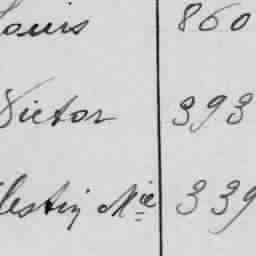 Louis 860
Victor 393
lestin Mie 339